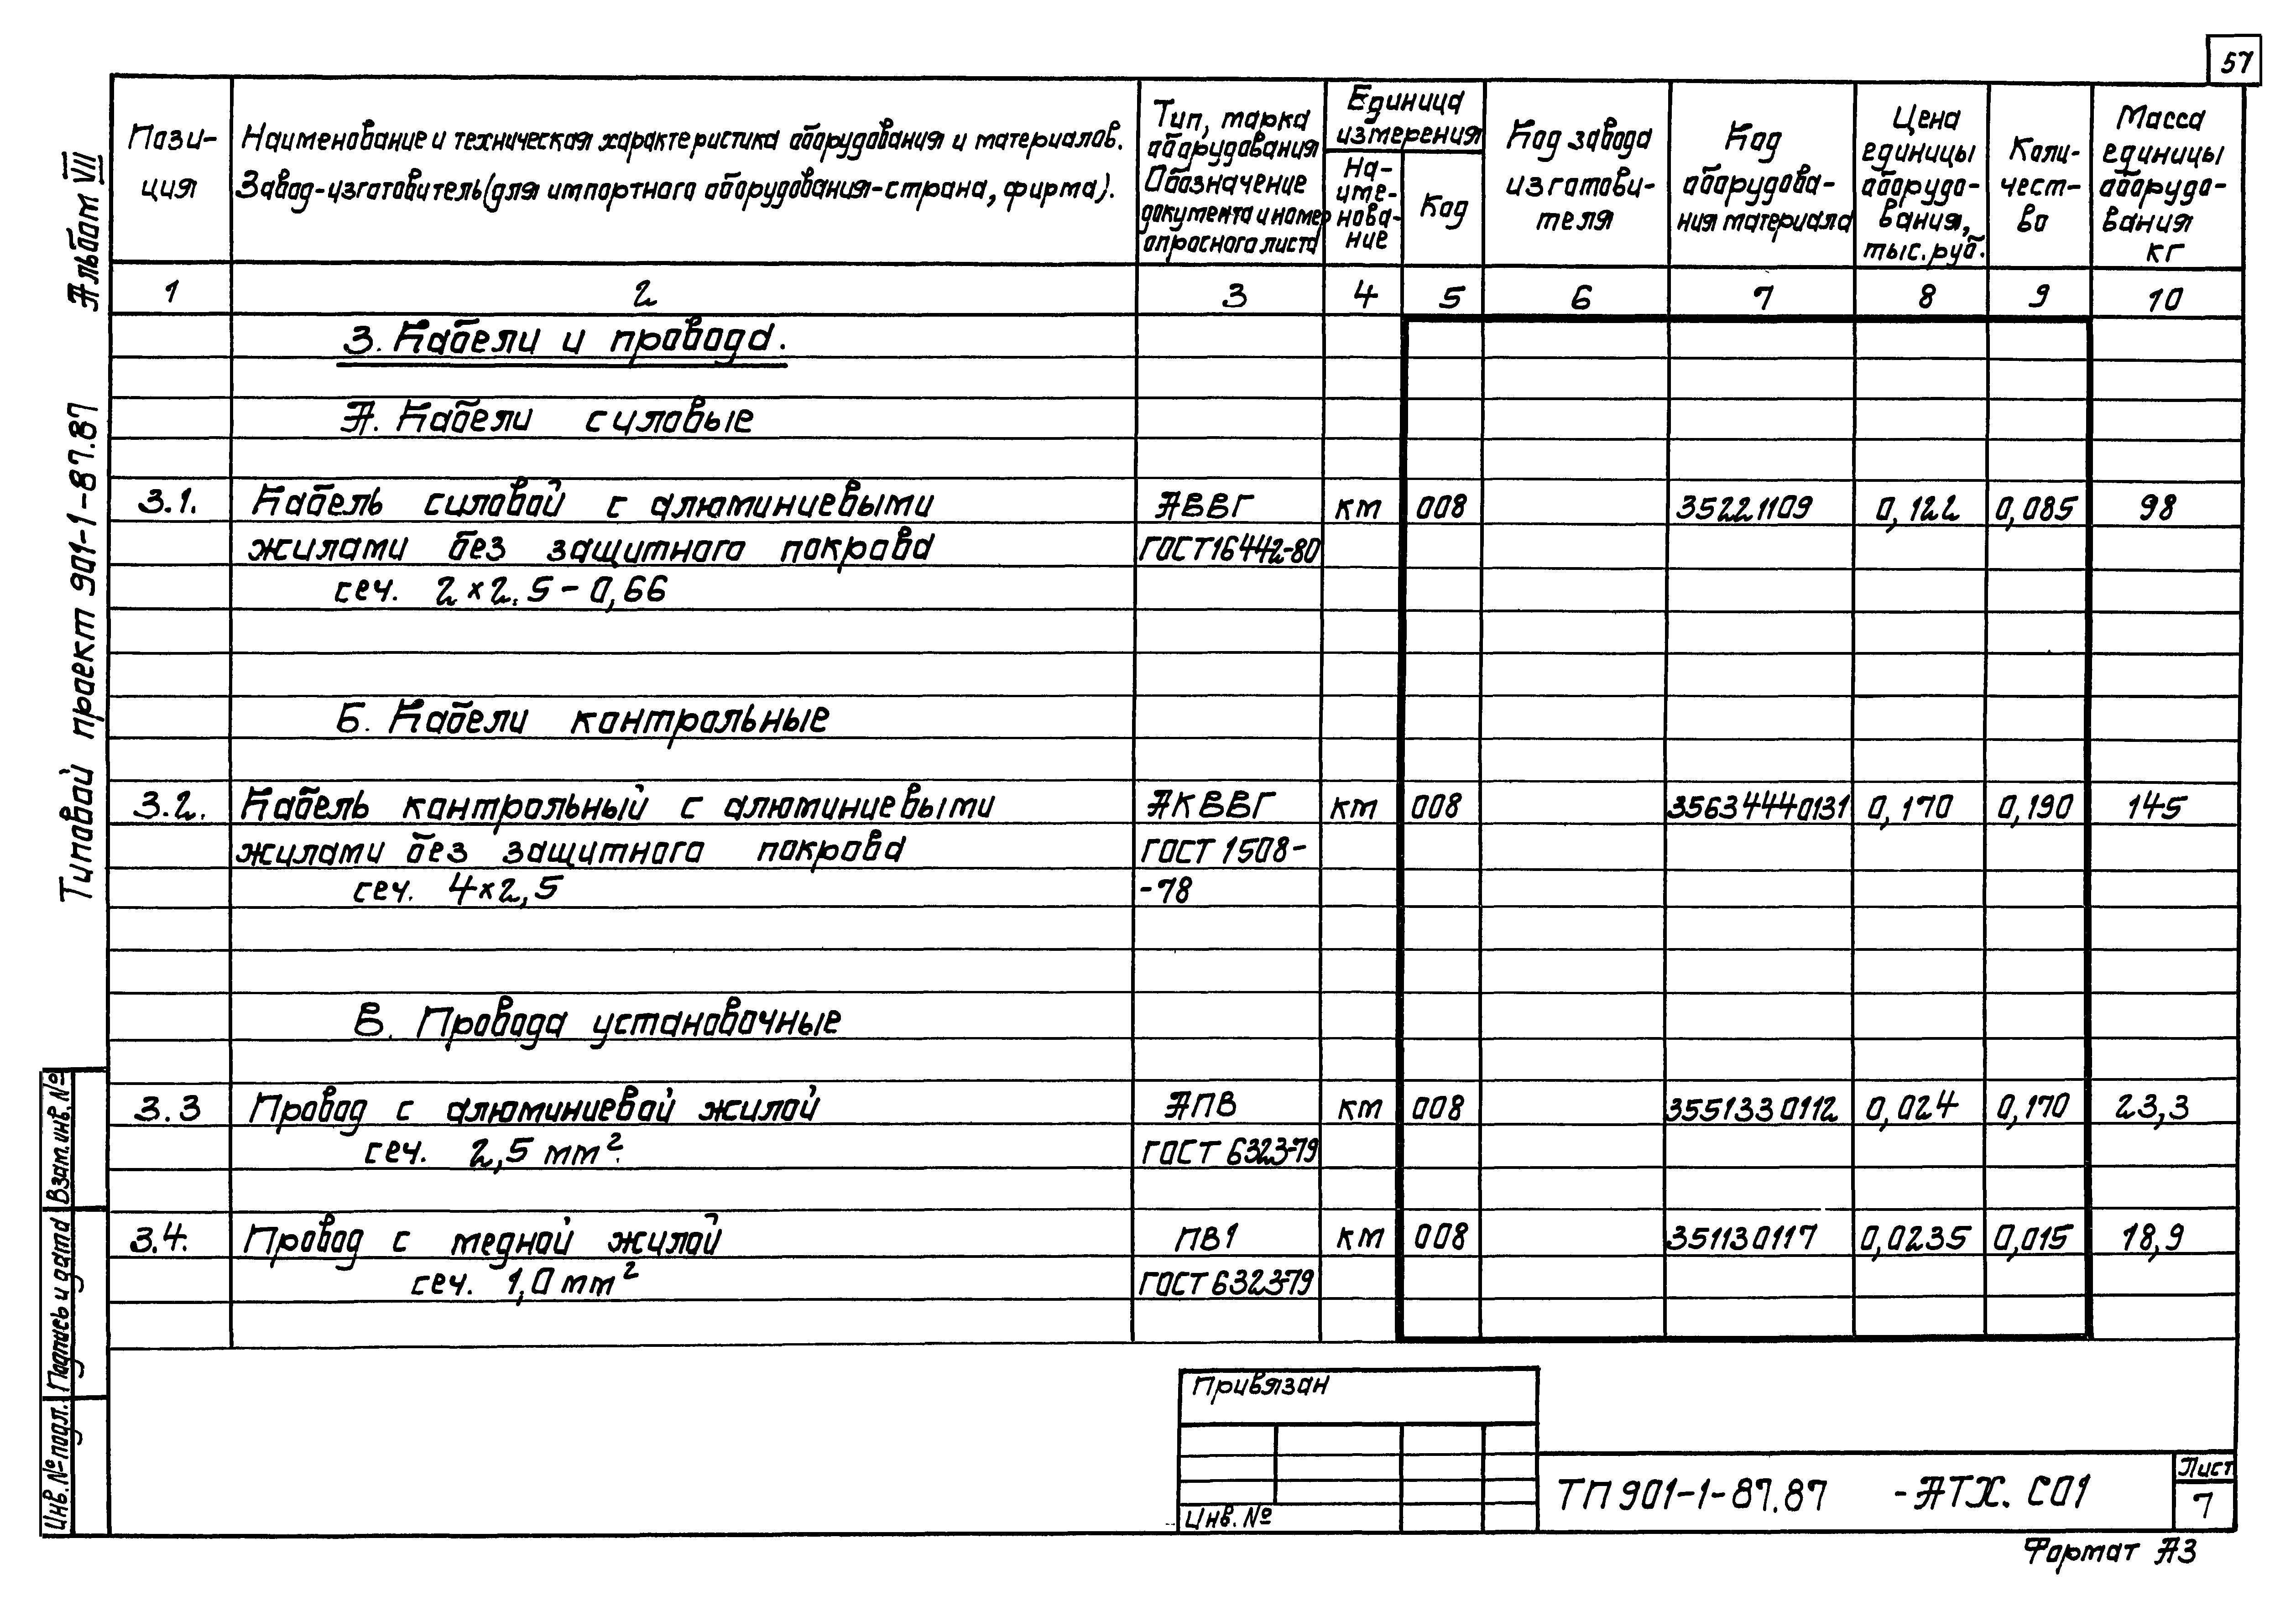 57
Пози-
ция
Наименование и техническая характеристика оборудования и материалов.
Завод-изготовитель (для импортного оборудования-страна, фирма).
Тип, марка
оборудования
Обозначение
документа и номер
опросного листа
Единица
измерения
На-
име-
нова-
ние
Код
Код завода
изготови-
теля
Код
оборудова-
ния материала
Цена
единицы
оборудо-
вания,
тыс. руб.
Коли-
чест-
во
Масса
единицы
оборудо-
вания
кг
1 2 3 4 5 6 7 8 9 10
3. Кабели и провода.
А. Кабели силовые
3.1. Кабель силовой с алюминиевыми АВВГ км 008 35221109 0,122 0,085 98
жилами без защитного покрова ГОСТ 16442-80
сеч. 2×2.5-0,66
Б. Кабели контрольные
3.2. Кабель контрольный с алюминиевыми АКВВГ км 008 35634440131 0,170 0,190 145
жилами без защитного покрова ГОСТ 1508-
сеч. 4×2,5 -78
В. Провода установочные
3.3 Провод с алюминиевой жилой АПВ км 008 3551330112 0,024 0,170 23,3
сеч. 2,5 мм². ГОСТ 6323-79
3.4. Провод с медной жилой ПВ1 км 008 351130117 0,0235 0,015 18,9
сеч. 1,0 мм² ГОСТ 6323-79
Альбом VII
Типовой проект 901-1-87.87
Взам. инв. №
Подпись и дата
Инв. № подл.
Привязан
Инв. №
ТП 901-1-87.87 -АТХ. СО1
Лист
7
Формат А3